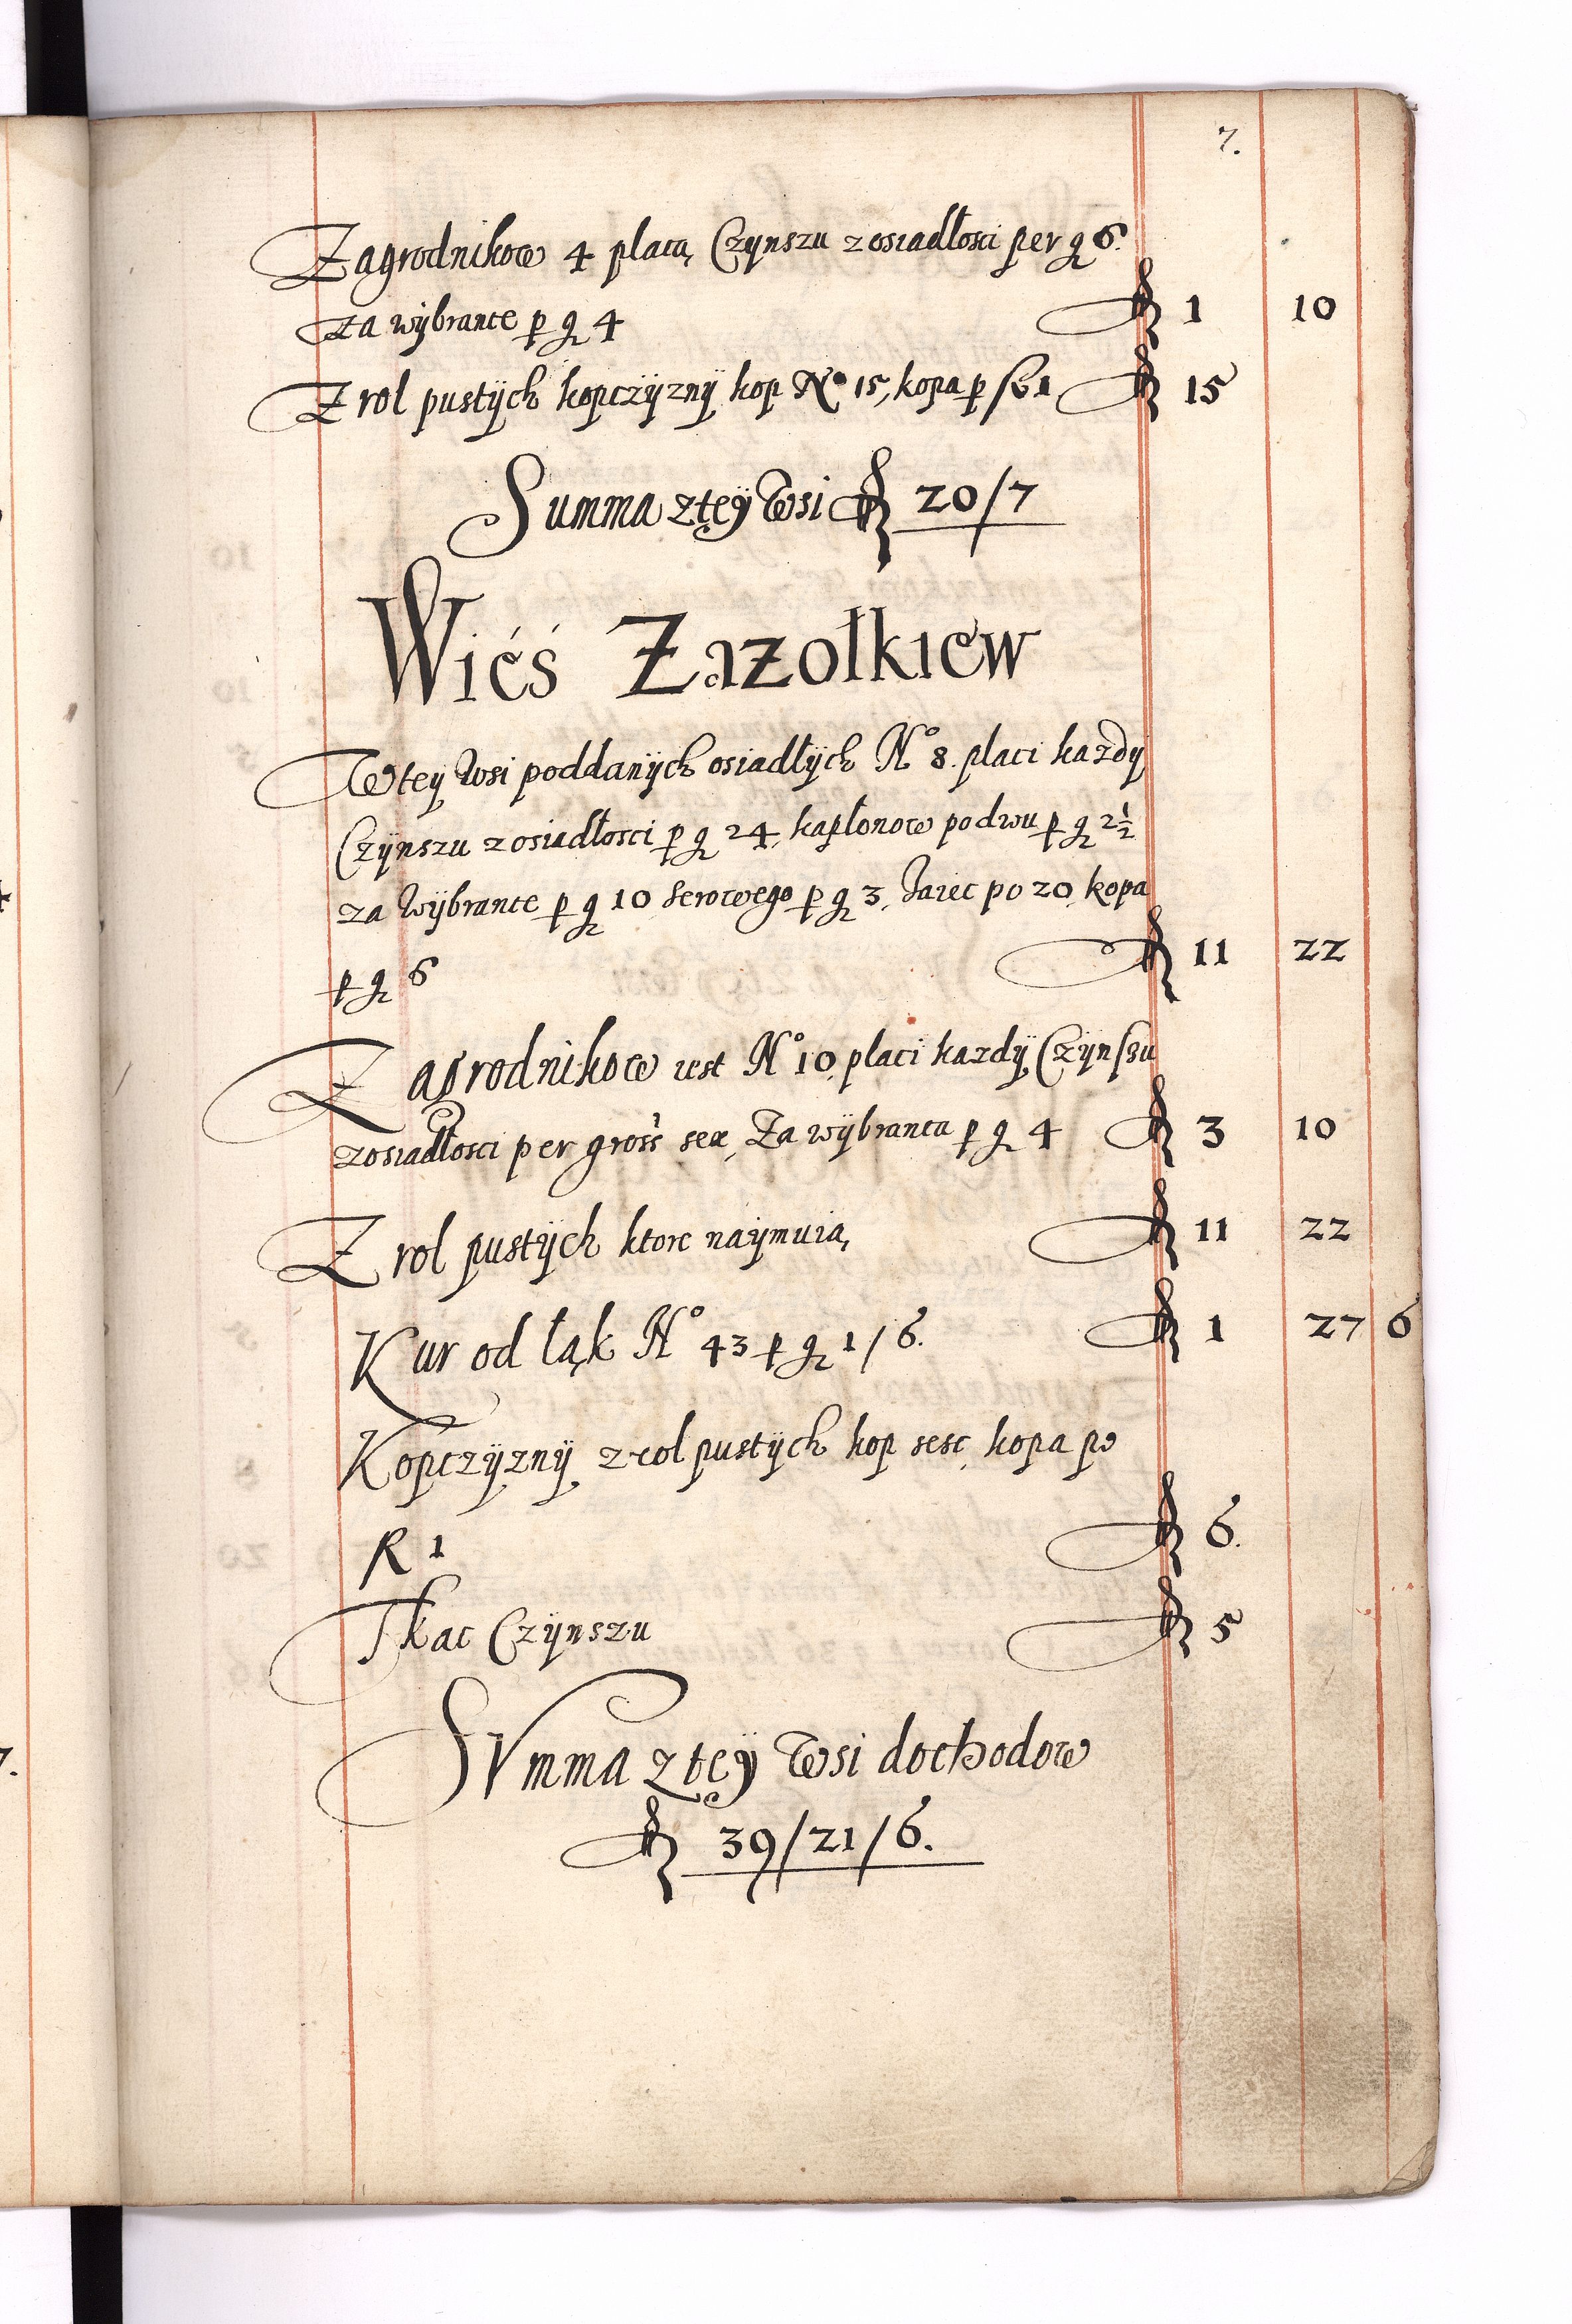 7.
Zagrodnikow 4 płacą Czÿnszu z osiadłosci per gr 6.
Za wÿbrance p gr 4 fl 1 10
Z rol pustÿch kopczÿznÿ kop No 15, kopa p fl 1 fl 15
Summa z tey Wsi fl 20/7
Wieś Zazołkiew
W tey Wsi poddanÿch osiadłÿch No 8. płaci kazdy
Czÿnszu z osiadłosci p gr 24, kapłonow po dwu p gr 2½
za Wÿbrance p gr 10 serowego p gr 3, Jaiec po 20, kopa
p gr 6 fl 11 22
Zagrodnikow iest No 10 płaci kazdÿ Czÿnszu
z osiadłosci per gross sex, Za wÿbranca p gr 4 fl 3 10
Z rol pustÿch ktore naÿmuią fl 11 22
Kur od łąk No 43 p gr 1/6. fl 1 27 6
Kopczÿznÿ z rol pustÿch kop sesc, kopa po
R 1 fl 6.
Tkac Czÿnszu fl 5
SVmma z tey Wsi dochodow
fl 39/21/6.